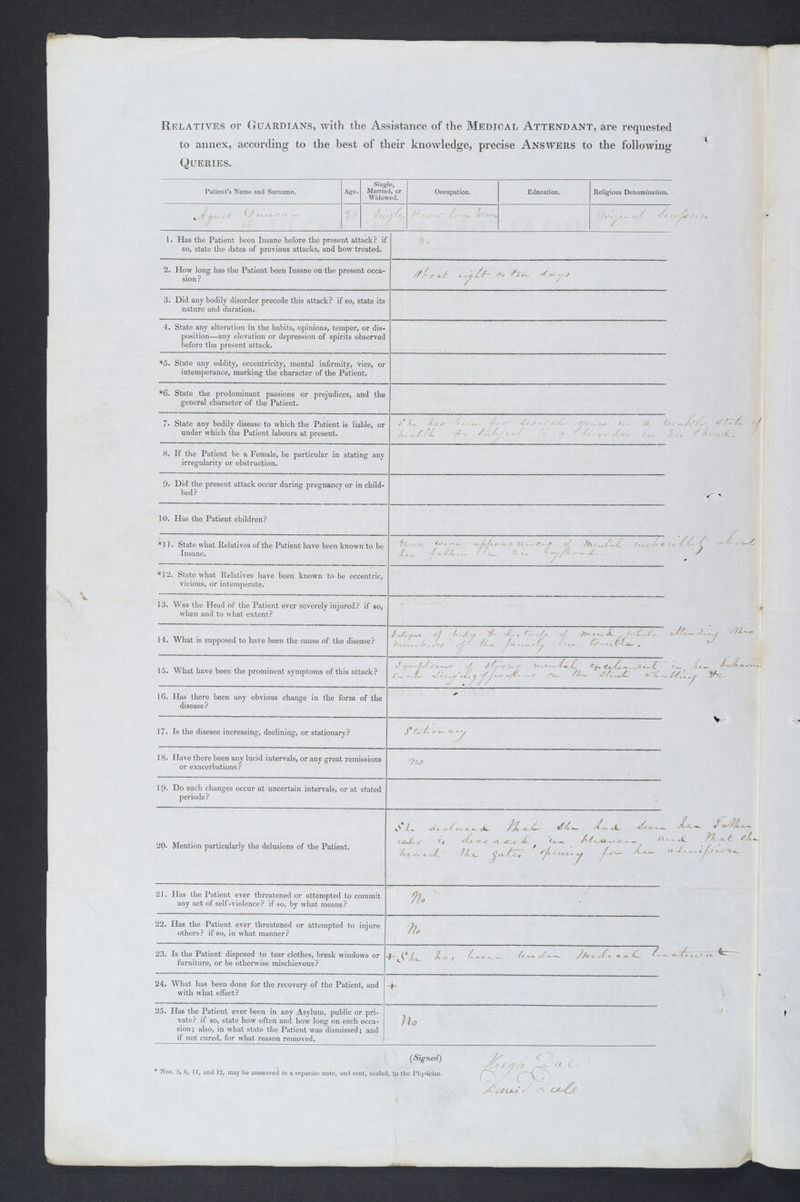 RELATIVES or GUARDIANS, with the Assistance of the MEDICAL ATTENDANT, are requested
to annex, according to the best of their knowledge, precise ANSWERS to the following
QUERIES.
Patient's Name and Surname. Age. Single, Married, or Widowed. Occupation. Education. Religious Denomination.
Agnes Duncan 20 Single Power Loom Original Secession
1. Has the Patient been Insane before the present attack? if
so, state the dates of previous attacks, and how treated.
No
2. How long has the Patient been Insane on the present occa-
sion?
About eight or ten days
3. Did any bodily disorder precede this attack? if so, state its
nature and duration.
4. State any alteration in the habits, opinions, temper, or dis-
position—any elevation or depression of spirits observed
before the present attack.
*5. State any oddity, eccentricity, mental infirmity, vice, or
intemperance, marking the character of the Patient.
*6. State the predominant passions or prejudices, and the
general character of the Patient.
7. State any bodily disease to which the Patient is liable, or
under which the Patient labours at present.
She has been for several years in a weakly state of
health & subject to a disorder in her head.
8. If the Patient be a Female, be particular in stating any
irregularity or obstruction.
9. Did the present attack occur during pregnancy or in child-
bed?
10. Has the Patient children?
*11. State what Relatives of the Patient have been known to be
Insane.
were appearances of mental imbecility about
her father in his boyhood
*12. State what Relatives have been known to be eccentric,
vicious, or intemperate.
13. Was the Head of the Patient ever severely injured? if so,
when and to what extent?
14. What is supposed to have been the cause of the disease?
Fatigue of body & of mind while attending
members of the family in trouble.
15. What have been the prominent symptoms of this attack?
Symptoms of strong mental excitement in her behaviour
such singing on the street whistling &c
16. Has there been any obvious change in the form of the
disease?
17. Is the disease increasing, declining, or stationary?
Stationary
18. Have there been any lucid intervals, or any great remissions
or exacerbations?
No
19. Do such changes occur at uncertain intervals, or at stated
periods?
20. Mention particularly the delusions of the Patient.
She declared that she had seen her Father
who is deceased in heaven, and that she
heard the gates opening for her admission
21. Has the Patient ever threatened or attempted to commit
any act of self-violence? if so, by what means?
No
22. Has the Patient ever threatened or attempted to injure
others? if so, in what manner?
No
23. Is the Patient disposed to tear clothes, break windows or
furniture, or be otherwise mischievous?
+ She has been under Medical treatment
24. What has been done for the recovery of the Patient, and
with what effect?
+
25. Has the Patient ever been in any Asylum, public or pri-
vate? if so, state how often and how long on each occa-
sion; also, in what state the Patient was dismissed; and
if not cured, for what reason removed.
No
(Signed) Hugh
* Nos. 5, 6, 11, and 12, may be answered in a separate note, and sent, sealed, to the Physician.
David